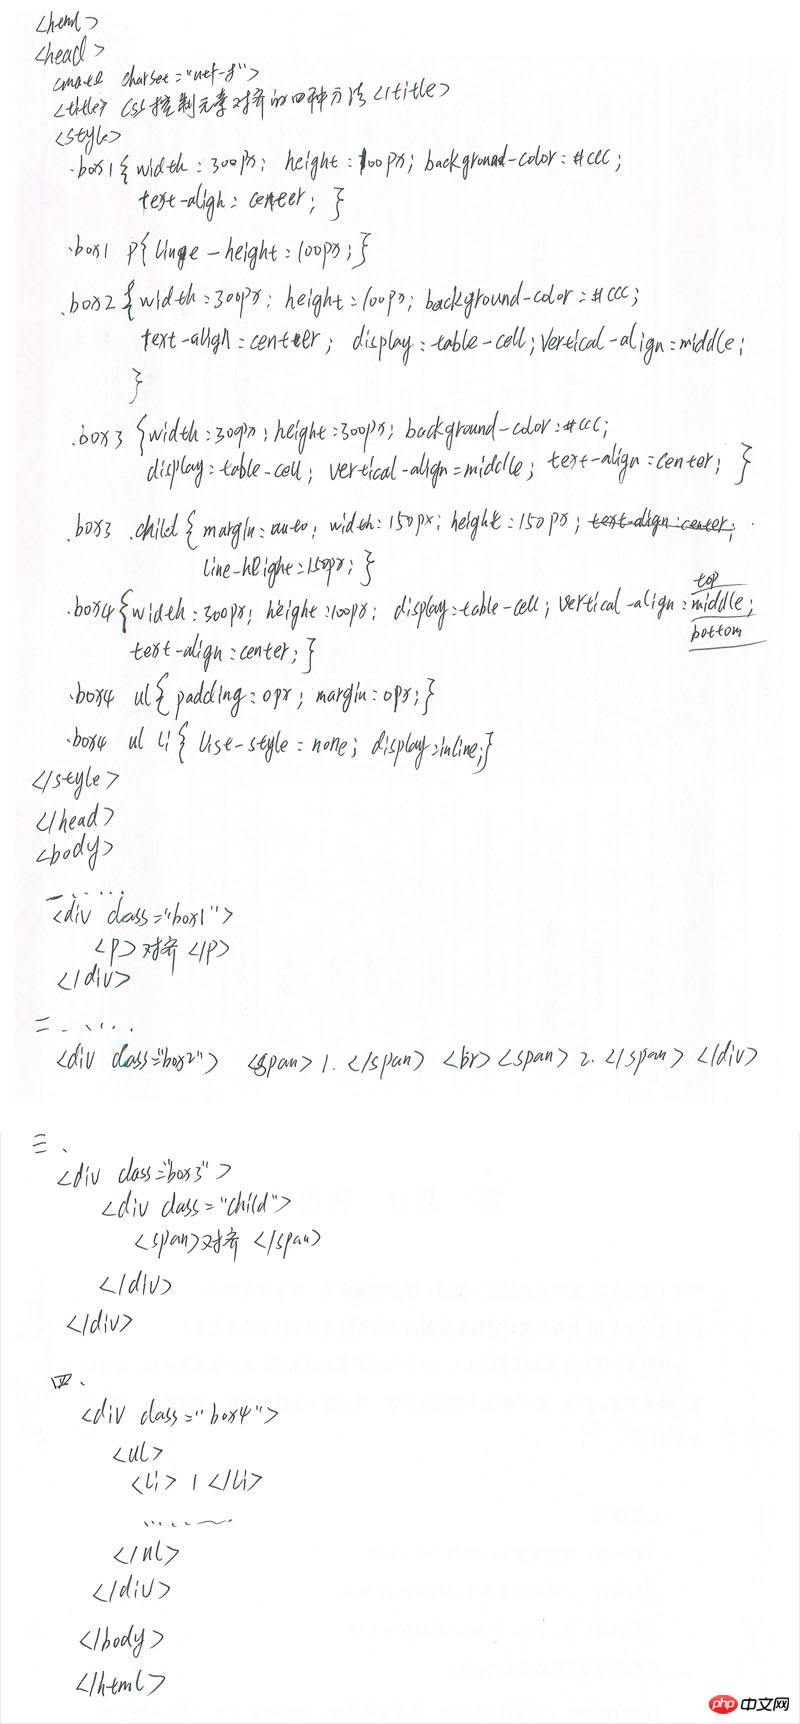 <html>
<head>
<meta charset="utf-8">
<title> CSS控制元素对齐的四种方法 </title>
<style>
.box1{ width:300px; height:100px; background-color:#ccc;
text-align:center; }
.box1 p{ linge-height:100px; }
.box2{ width:300px; height:100px; background-color:#ccc;
text-align:center; display:table-cell; vertical-align:middle;
}
.box3 {width:300px; height:300px; background-color:#ccc;
display:table-cell; vertical-align:middle; text-align:center; }
.box3 .child{ margin:auto; width:150px; height:150px; text-align:center;
line-height:150px; }
top
.box4{width:300px; height:100px; display:table-cell; vertical-align:middle;
bottom
text-align:center; }
.box4 ul{ padding:0px; margin:0px; }
.box4 ul li{ list-style:none; display:inline;}
</style>
</head>
<body>
一......
<div class="box1">
<p>对齐</p>
</div>
二.....
<div class="box2"> <span>1.</span> <br> <span>2.</span> </div>
三、
<div class="box3">
<div class="child">
<span>对齐</span>
</div>
</div>
四、
<div class="box4">
<ul>
<li>1</li>
......
</ul>
</div>
</body>
</html>
php 中文网